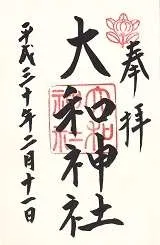 奉拝
大和神社
平成三十年二月十一日